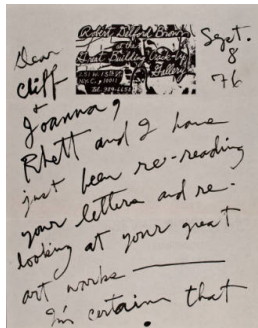 Robert Delford Brown
at the
Great Building Crack-Up
Gallery
251 W. 13th St.
NYC, 10011
Sept.
8
76
Dear
Cliff
+
Joanna,
Rhett and I have
just been re-reading
your letters and re-
looking at your great
art works —
I'm certain that